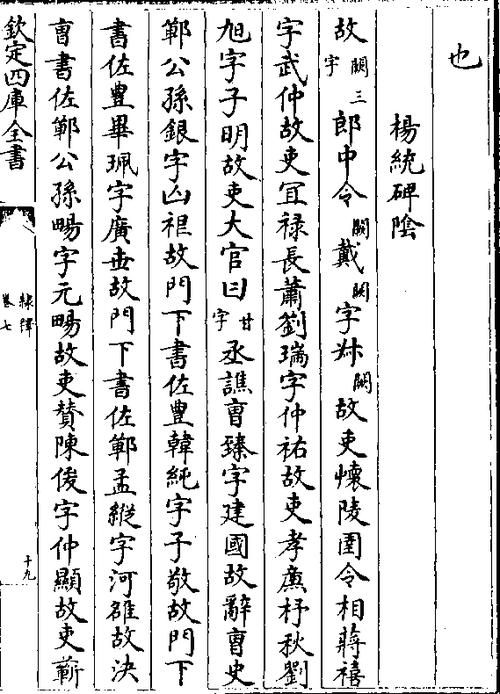 也
楊統碑陰
故闕三字郎中令闕戴闕字叔闕故吏懷陵圉令相蔣禧
字武仲故吏冝祿長蕭劉瑞字仲祐故吏孝廉杼秋劉
旭字子明故吏大官曰甘字丞譙曹臻字建國故辭曹史
鄲公孫銀字山䘽故門下書佐豐韓純字子敬故門下
書佐豊畢珮字廣世故門下書佐鄲孟縱字河雒故決
曹書佐鄲公孫暢字元暢故吏贊陳俊字仲顯故吏蘄
欽定四庫全書
隸釋
卷七
十九